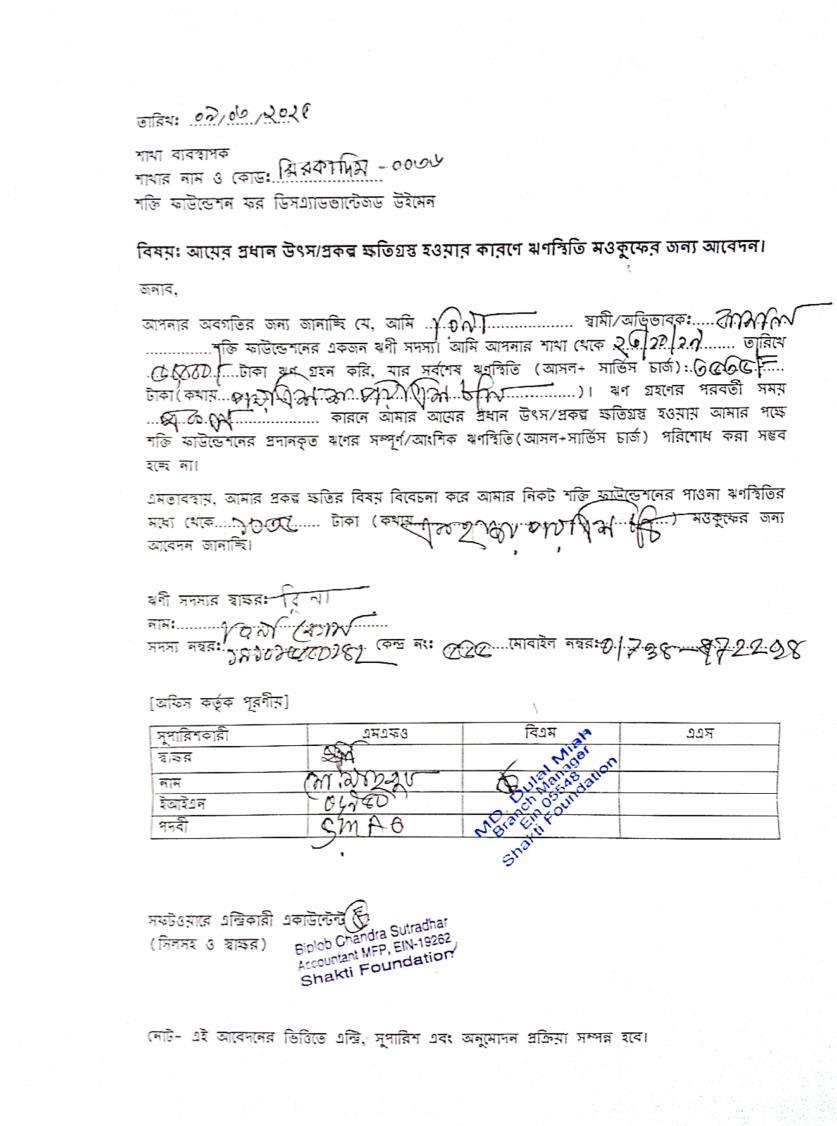 তারিখঃ ০৯/০৬/২০২৫
শাখা ব্যবস্থাপক
শাখার নাম ও কোড: মিরকাদিম - ০০৩৬
শক্তি ফাউন্ডেশন ফর ডিসএ্যাডভান্টেজড উইমেন
বিষয়ঃ আয়ের প্রধান উৎস/প্রকল্প ক্ষতিগ্রস্ত হওয়ার কারণে ঋণস্থিতি মওকুফের জন্য আবেদন।
জনাব,
আপনার অবগতির জন্য জানাচ্ছি যে, আমি ..রিনা.......... স্বামী/অভিভাবক:.....কামাল
...............শক্তি ফাউন্ডেশনের একজন ঋনী সদস্য। আমি আপনার শাখা থেকে ........ তারিখে
টাকা ঋণ গ্রহন করি, যার সর্বশেষ ঋণস্থিতি (আসল+ সার্ভিস চার্জ):
টাকা(কথায়....................)। ঋণ গ্রহণের পরবর্তী সময়
.................... কারনে আমার আয়ের প্রধান উৎস/প্রকল্প ক্ষতিগ্রস্ত হওয়ায় আমার পক্ষে
শক্তি ফাউন্ডেশনের প্রদানকৃত ঋণের সম্পূর্ণ/আংশিক ঋণস্থিতি(আসল+সার্ভিস চার্জ) পরিশোধ করা সম্ভব
হচ্ছে না।
এমতাবস্থায়, আমার প্রকল্প ক্ষতির বিষয় বিবেচনা করে আমার নিকট শক্তি ফাউন্ডেশনের পাওনা ঋণস্থিতির
মধ্যে থেকে............ টাকা (কথায় এক হাজার ........) মওকুফের জন্য
আবেদন জানাচ্ছি।
ঋণী সদস্যর স্বাক্ষরঃ রিনা
নাম:..........রিনা বেগম
সদস্য নম্বর: কেন্দ্র নং: মোবাইল নম্বর:
[অফিস কর্তৃক পূরণীয়]
সুপারিশকারী এমএফও বিএম এএস
স্বাক্ষর
নাম
ইআইএন
পদবী
MD. Dulal Miah
Branch Manager
Ein 05548
Shakti Foundation
সফটওয়ারে এন্ট্রিকারী একাউন্টেন্ট
(সিলসহ ও স্বাক্ষর)
Biplob Chandra Sutradhar
Accountant MFP, EIN-19262
Shakti Foundation
নোট- এই আবেদনের ভিত্তিতে এন্ট্রি, সুপারিশ এবং অনুমোদন প্রক্রিয়া সম্পন্ন হবে।